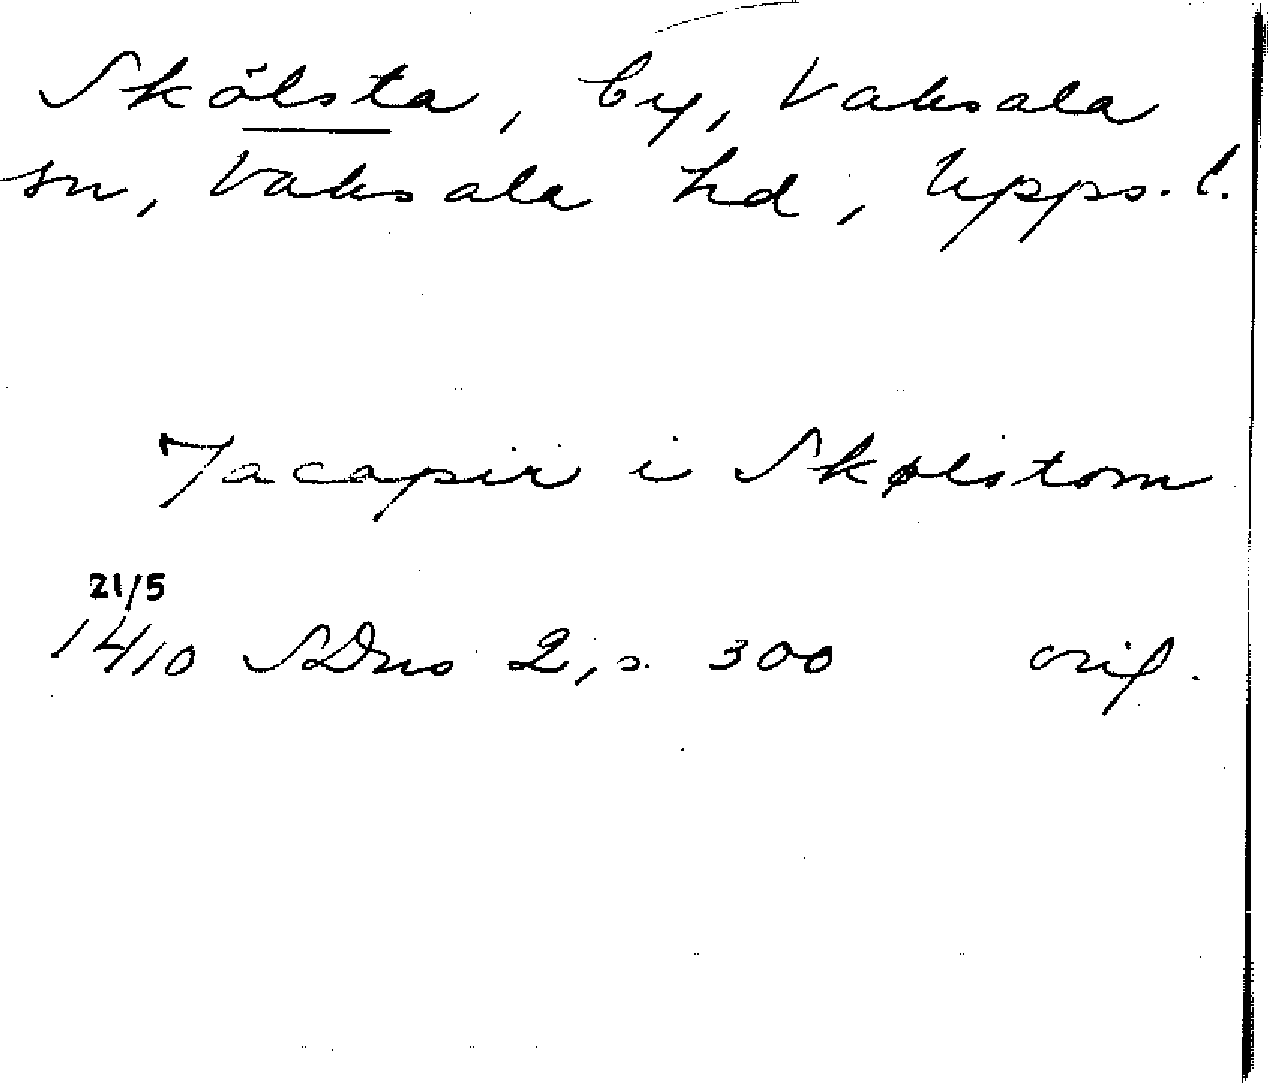 Skölsta, by, Vaksala
sn, Vaksala hd, Upps. l.
Jacapir i Skølstom
21/5
1410 SDns 2, s. 300 orig.